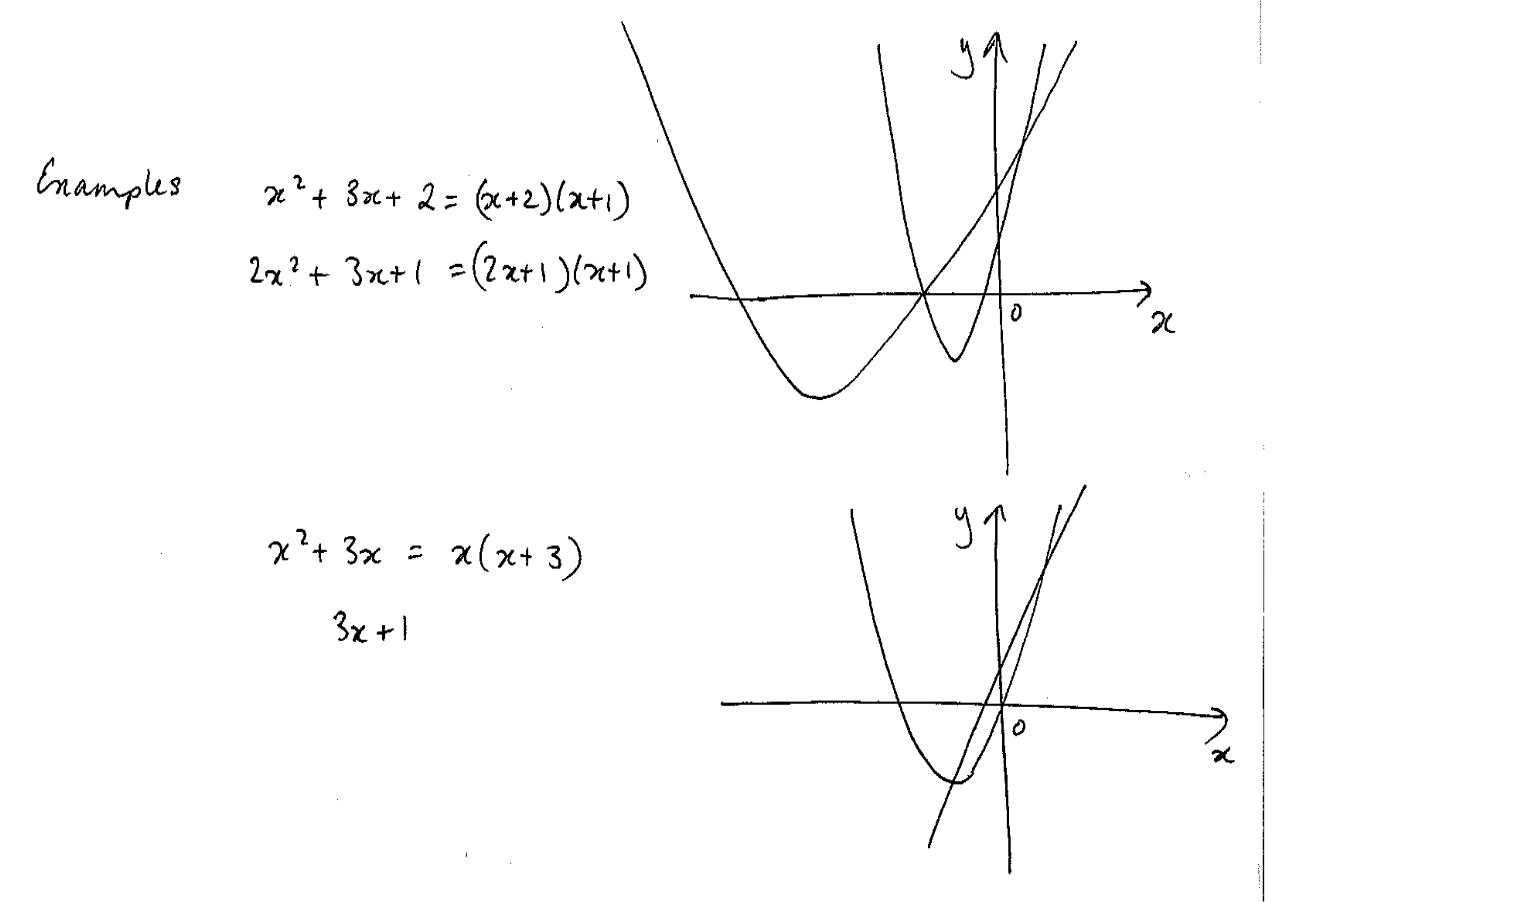 Examples x² + 3x + 2 = (x+2)(x+1)
2x² + 3x + 1 = (2x+1)(x+1)
y
0
x
x² + 3x = x(x + 3)
3x + 1
y
0
x